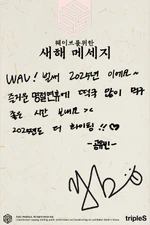 웨이브를위한
새해 메세지
WAV! 벌써 2024년 이에요~
즐거운 명절연휴에 떡국 많이 먹구
좋은 시간 보내요 ><
2024년도 더 화이팅!! ♡
-공유빈-
tripleS